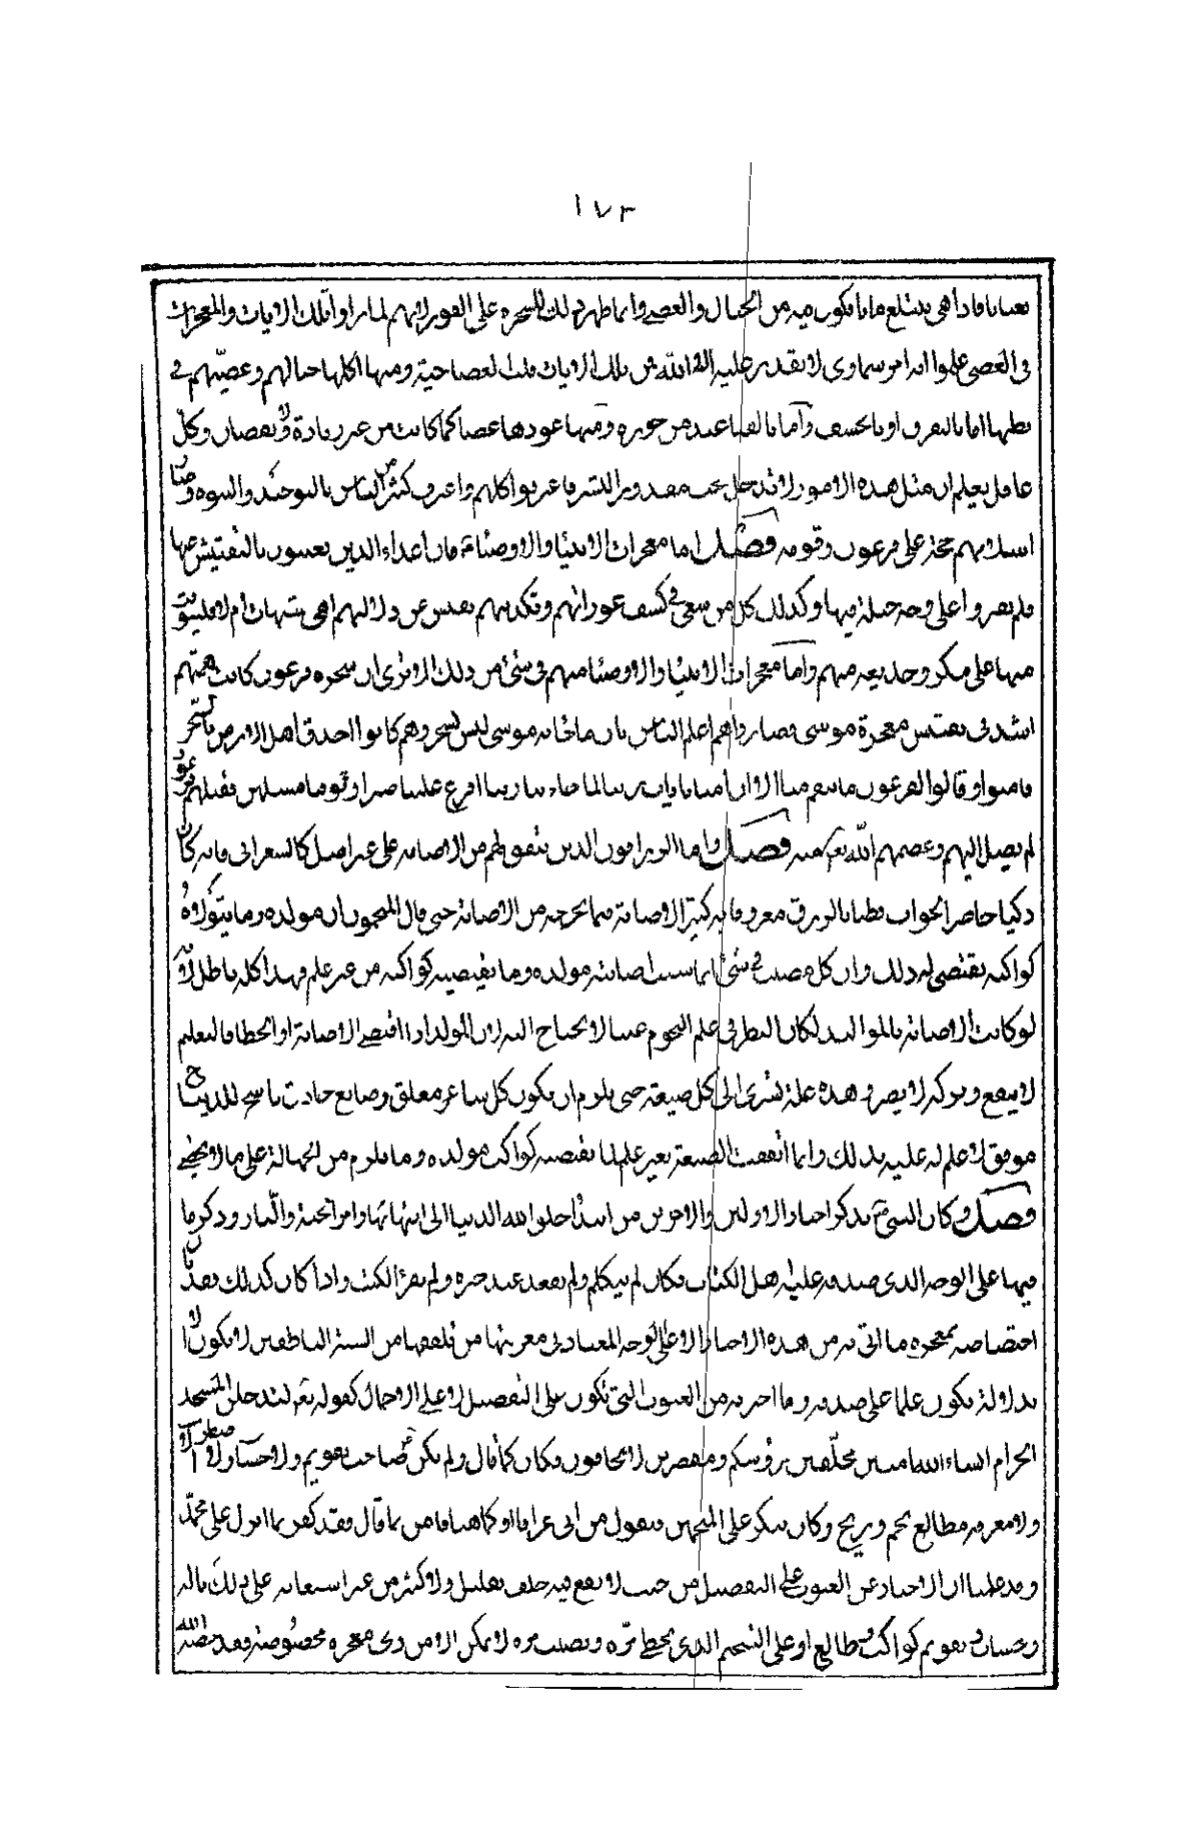 ١٧٣
ثعبانا فاذا هى يبتلع ما يافكون فيه من الحبال والعصى وانما ظهر ذلك للسحرة على الفور لانهم لما راوا تلك الايات والمعجزات
فى العصى علموا انه امر سماوى لا يقدر عليه الا الله من تلك الايات قلب العصا حية ومنها اكلها حبالهم وعصيهم فى
بطنها اما بالتفرق او بالخسف واما بالفنا عند من جوزه ومنها عودها عصا كما كانت من غير زيادة ولا نقصان وكل
عاقل يعلم ان مثل هذه الامور لا تدخل تحت مقدور البشر فاعترفوا كلهم واعترف كثير من الناس بالتوحيد والنبوة وصار
اسلامهم حجة على فرعون وقومه فصل اما معجزات الانبيا والاوصياء فان اعداء الدين يعنون بالتفتيش عنها
فلم يعثروا على وجه حيلة فيها وكذلك كل من سعى فى كشف عوراتهم وتكذيبهم يفتش عن دلالتهم اهى شبهات ام لا فلم يوقف
منها على مكر وخديعة منهم واما معجزات الانبيا والاوصيا منهم فى شئ من ذلك الا ترى ان سحرة فرعون كانت همتهم
اشد فى تفتيش معجزة موسى فصاروا هم اعلم الناس بان ما جاء به موسى ليس بسحر وهم كانوا احذق اهل الارض بالسحر
فامنوا وقالوا لفرعون ما تنقم منا الا ان امنا بايات ربنا لما جاءتنا ربنا افرغ علينا صبرا وتوفنا مسلمين فقتلهم فرعون
لم يصل اليهم وعصمهم الله تعالى منه فصل واما الزراقون الذين يتفق لهم من الاصابة على غير اصل كالشعرانى فانه كان
ذكيا حاضر الجواب فطنا بالزرق معروفا به كثير الاصابة فيما يخرجه من الاصابة حتى قال المنجمون ان مولده وما يتولاه
كواكبه يقتضى له ذلك وان كل من يصيب فى شئ انما سبب اصابته مولده وما يقتضيه كواكبه من غير علم وهذا كله باطل لانه
لو كانت الاصابة بالمواليد لكان النظر فى علم النجوم عبثا لا يحتاج اليه لان المولد اذا اقتضى الاصابة او الخطا فالتعلم
لا ينفع وتركه لا يضر وهذه علة تسرى الى كل صنعة حتى يلزم ان يكون كل شاعر مفلق وصانع حاذق ناسج للديباج
موفق لا علم له عليه بذلك وانما اتفقت الصنعة بغير علم لما تقتضيه كواكب مولده وما يلزم من الجهالة على هذا لا يحصى
فصل وكان النبى يذكر اخبار الاولين والاخرين من ابتداء خلق الله الدنيا الى انتهائها وامر الجنة والنار وذكر ما
فيها على الوجه الذى صدقه عليه اهل الكتاب وكان لم يتكلم ولم يقعد عند حبر ولم يقرا الكتب واذا كان كذلك فقد بان
اختصاصه بمعجزة ما اتى به من هذه الاخبار لا على الوجه المعتاد فى معرفتها من تلقفها من السنة الناطقين لا يكون الا
بدلالة يكون علما على صدقه وما اخبر به من الغيوب التى تكون على التفصيل لا على الاجمال كقوله تعالى لتدخلن المسجد
الحرام ان شاء الله امنين محلقين رؤسكم ومقصرين لا تخافون وكان كما قال ولم يكن صاحب تقويم ولا حساب ولا اصطرلاب
ولا معرفة مطالع نجم وزيج وكان ينكر على المنجمين فيقول من اتى عرافا او كاهنا فامن بما قال فقد كفر بما انزل على محمد
وقد علمنا ان الاخبار عن الغيوب على التفصيل من حيث لا يقع فيه خلف بقليل ولا كثير من غير استعانة على ذلك بالة
وحساب وتقويم كواكب وطالع او على التنجيم الذى يخطئ مرة ويصيب مرة لا يمكن الا من ذى معجزة مخصوصة قد خصه الله